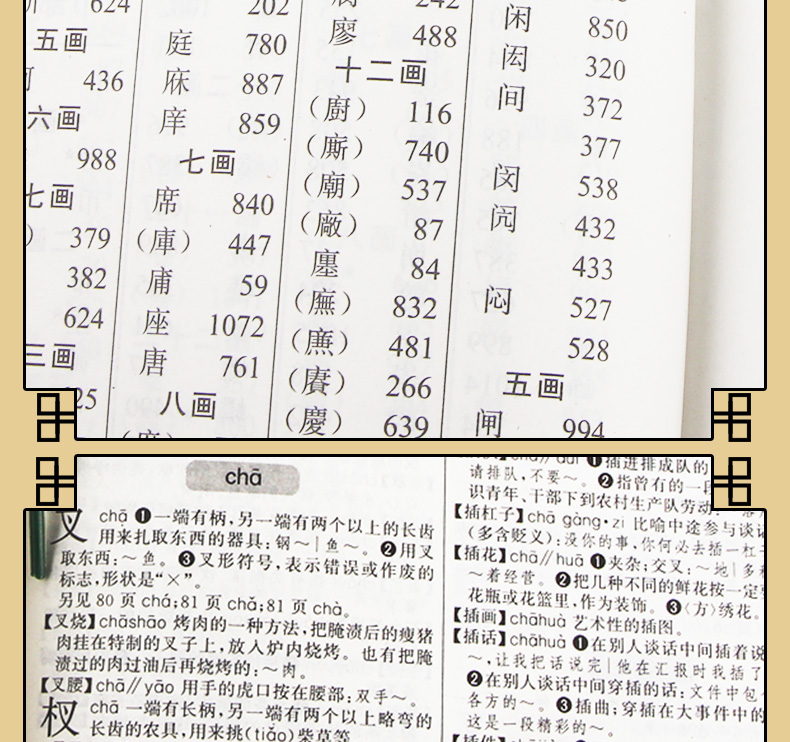 624
五画
436
六画
988
七画
379
382
624
三画
25
202
庭 780
庥 887
庠 859
七画
席 840
（庫） 447
庯 59
座 1072
唐 761
八画
242
廖 488
十二画
（廚） 116
（廝） 740
（廟） 537
（廠） 87
廛 84
（廡） 832
（廡） 481
（賡） 266
（慶） 639
闲 850
闳 320
间 372
377
闵 538
闶 432
433
闷 527
528
五画
闸 994
chā
叉 chā ❶一端有柄，另一端有两个以上的长齿
用来扎取东西的器具：钢～｜鱼～。❷用叉
取东西：～鱼。❸叉形符号，表示错误或作废的
标志，形状是“×”。
另见 80 页 chá；81 页 chǎ；81 页 chà。
【叉烧】chāshāo 烤肉的一种方法，把腌渍后的瘦猪
肉挂在特制的叉子上，放入炉内烧烤。也有把腌
渍过的肉过油后再烧烤的：～肉。
【叉腰】chā//yāo 用手的虎口按在腰部：双手～。
杈 chā 一端有长柄，另一端有两个以上略弯的
长齿的农具，用来挑(tiǎo)柴草等
chā//duì ❶插进排成队的
请排队，不要～。❷指曾有的一段
识青年、干部下到农村生产队劳动：
【插杠子】chā gàng·zi 比喻中途参与谈话
（多含贬义）：没你的事，你何必去插一杠子
【插花】chā//huā ❶夹杂；交叉：～地｜多种
～着经营。❷把几种不同的鲜花按一定要
花瓶或花篮里，作为装饰。❸〈方〉绣花。
【插画】chāhuà 艺术性的插图。
【插话】chāhuà ❶在别人谈话中间插着说
～，让我把话说完｜他在汇报时我插了
❷在别人谈话中间穿插的话：文件中包
各方的～。❸插曲；穿插在大事件中的
这是一段精彩的～。
【插件】